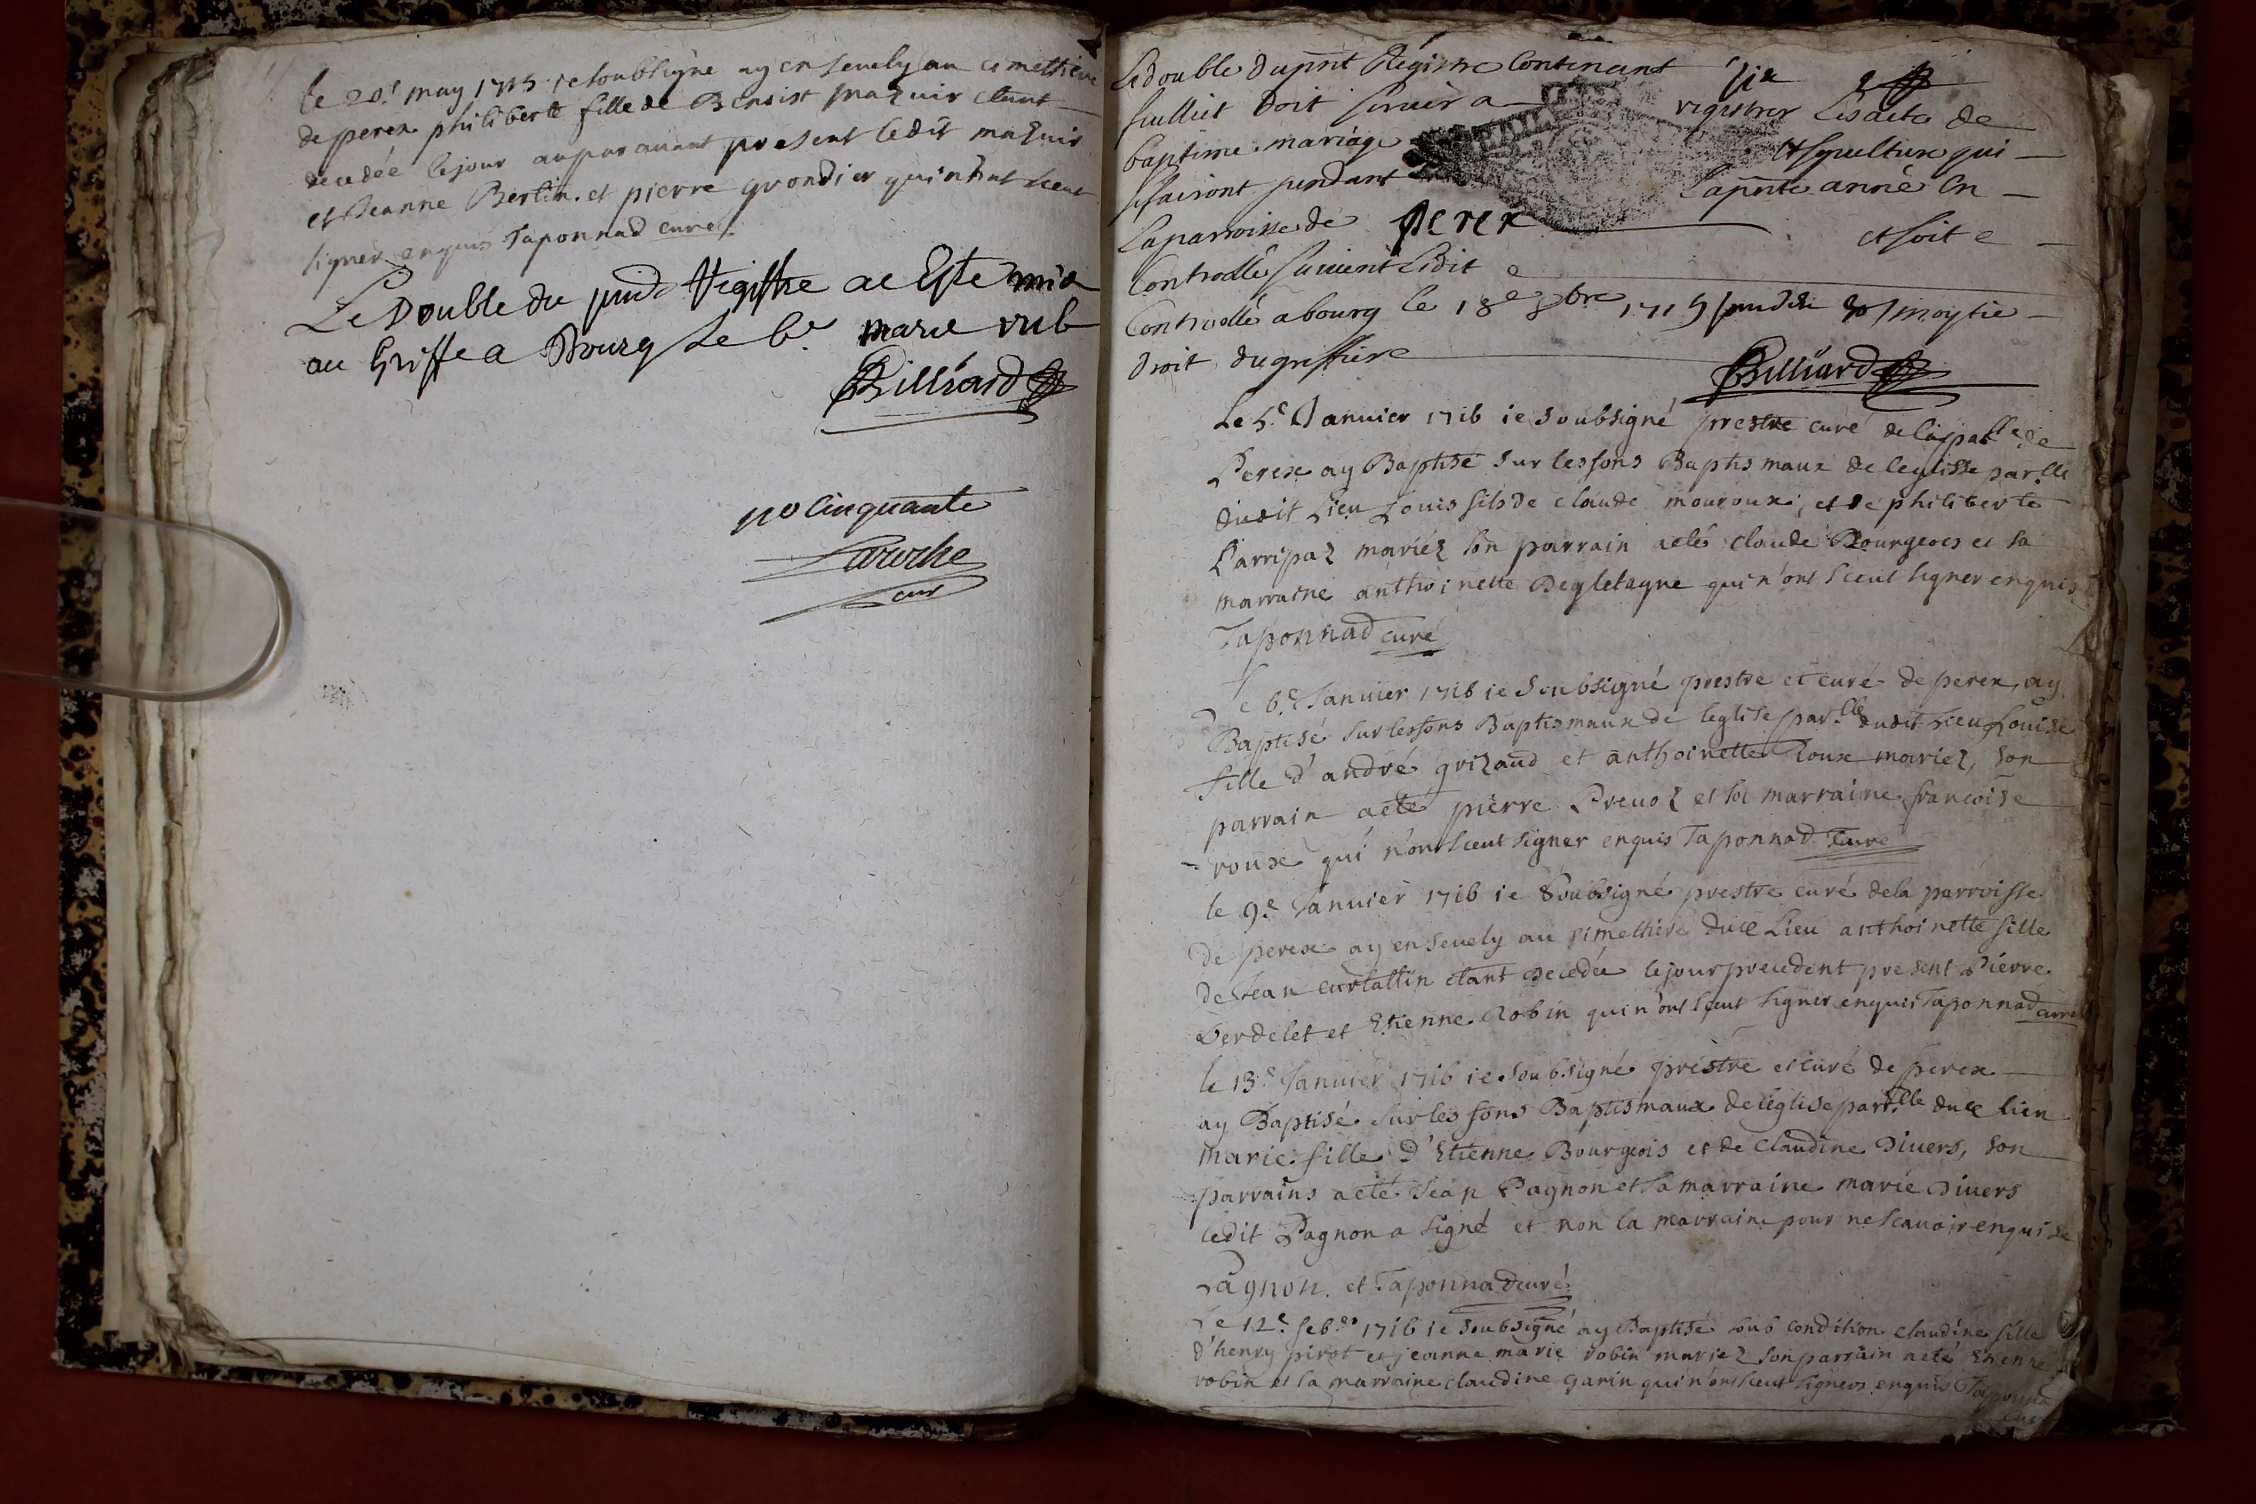 le 20.e may 1715 ie soubsigne ay ensevely au cimettiere
de perex philiberte fille de Benoist mazuir etant
decedée le jour auparavant present ledit mazuir
et Jeanne Bertin. et pierre grondier qui n'ont sceut
signer enquis Taponnad curé
Le Double du pnt Registre a Este mis
au Greffe a Bourg Le 6e mars
Billiard
no Cinquante
Laroche
cur
Le double du pnt Régistre Contenant six
fulliet doit servir a registrer Les acte de
baptime mariage et sepulture qui
se fairont pendant la pnte année En
La parroisse de Perex et soit e
Controllé suivent Ledit e
Controllé a bourg le 18e xbre 1715 moytie
droit du greffiere
Billiard
Le 5.e Janvier 1716 ie soubsigné prestre curé de la par.lle de
Perex ay Baptisé sur les fons Baptismaux de leglisse par.lle
dudit Lieu Louis fils de claude mouroux, et de philiberte
Parripaz mariéz son parrain a eté claude Bourgeois et sa
marraine anthoinette Degletagne qui n'ont sceut signer enquis
Taponnad curé
Le 6.e Janvier 1716 ie soubsigné prestre et curé de perex, ay
Baptisé sur les fons Baptismaux de leglise par.lle dudit Lieu Louise
fille d'andré grizaud et anthoinette Roux mariez, son
parrain a eté pierre Prevoz et sa marraine francoise
roux qui n'ont sceut signer enquis Taponnad Curé
le 9.e Janvier 1716 ie soubsigné prestre curé de la parroisse
de perex ay ensevely au cimettiere du ce Lieu anthoinette fille
de Jean curtattin etant decedée le jour precedent present Pierre
Verdelet et Etienne Robin qui n'ont sceut signer enquis Taponnad curé
le 13.e Janvier 1716 ie soubsigné prestre et curé de perex
ay Baptisé sur les fons Baptismaux de leglise parr.lle du ce lieu
marie fille d'Etienne Bourgeois et de Claudine Divers, son
parrains a eté Jean Pagnon et sa marraine marie Divers
ledit Pagnon a signé et non la marraine pour ne scavoir enquise
Pagnon. et Taponnad curé
Le 12.e feb.er 1716 ie soubsigné ay Baptisé sub condition claudine fille
d'henry pirot et jeanne marie robin mariez son parrain a eté Etienne
robin et sa marraine claudine garin qui n'ont sceut signers enquis Taponnad